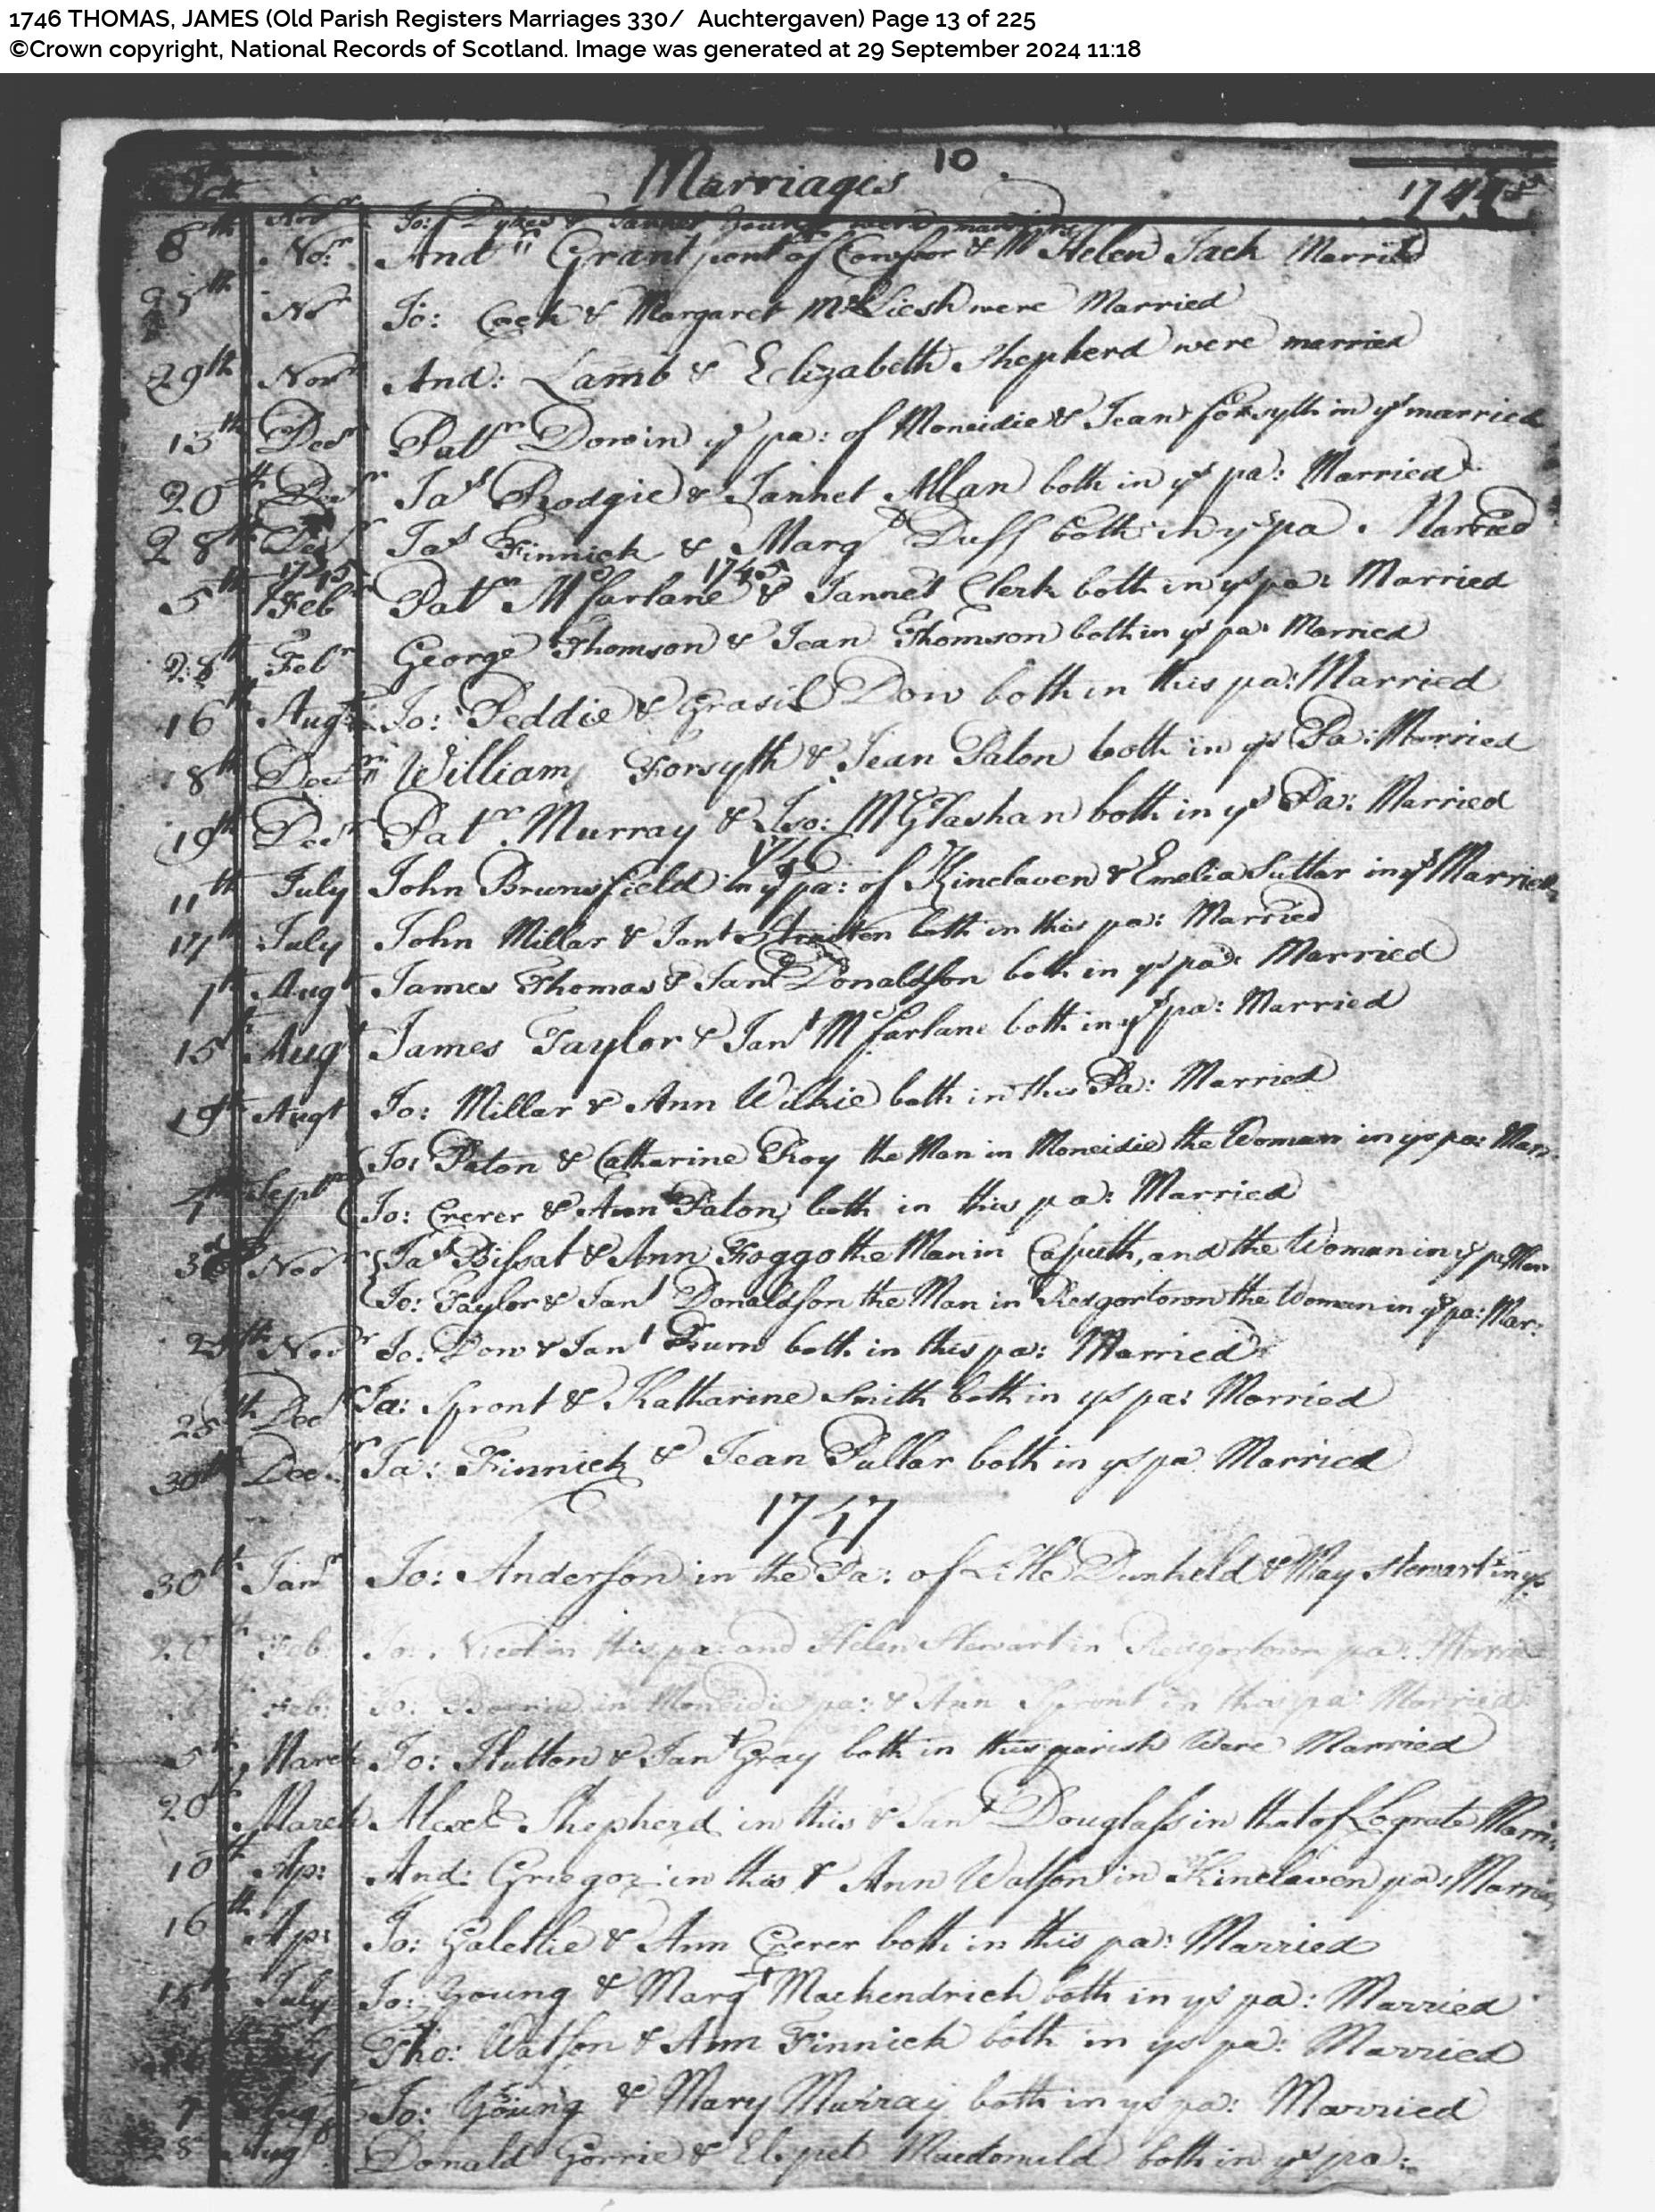 1746 THOMAS, JAMES (Old Parish Registers Marriages 330/ Auchtergaven) Page 13 of 225
©Crown copyright, National Records of Scotland. Image was generated at 29 September 2024 11:18
10
Marriages
Novr Jo: Dykes & Jannet Young were married
8th Nor And Grant of & Helen Jack Married
25th Nor Jo: Cock & Margaret McLiesh were Married
29th Novr And: Lamb & Elizabeth Shepherd were married
13th Decr Patr Dow in ys pa: of Moneidie & Jean forsyth in ys married
20th Decr Jas Rodgie & Jannet Allan both in ys pa: Married
28th Decr Jas Finnick & Margt Duff both in ys pa. Married
1745 1745
5th Febr Patr Mcfarlane & Jannet Clerk both in ys pa: Married
28th Febr George Thomson & Jean Thomson both in ys pa: Married
16th Augt Jo: Peddie & Grasil Dow both in this pa: Married
8th Decr William Forsyth & Jean Paton both in ys Pa: Married
19th Decr Patr Murray & Iso: McGlashan both in ys Pa: Married
1746
11th July John Brunsfield in ys pa: of Kinclaven & Emelia Sutter in ys Married
17th July John Millar & Jant both in this pa: Married
1st Augt James Thomas & Jant Donaldson both in ys pa: Married
15th Augt James Taylor & Jant Mcfarlane both in ys pa: Married
19th Augt Jo: Millar & Ann Wilkie both in this Pa: Married
Jo: Paton & Catharine Roy the Man in Moneidie the Woman in ys pa: Marr
4th Septr Jo: Crerer & Ann Paton both in this pa: Married
Novr Jas Bissat & Ann Foggo the Man in Caputh, and the Woman in ys pa Mar
Jo: Taylor & Jant Donaldson the Man in Redgortown the Woman in ys pa: Mar:
Novr Jo: Dow & Jant Burn both in this pa: Married
25th Decr Ja: Spront & Katharine Smith both in ys pa: Married
30th Decr Ja: Finnick & Jean Pullar both in ys pa Married
1747
30th Janr Jo: Anderson in the Pa: of Little Dunkeld & May Stewart in ys
20th Feb: Jo: Nicol in this pa: and Helen Stewart in Redgortown pa: Married
Feb: Jo: in Moneidie pa: & Ann Spront in this pa: Married
5th March Jo: Hutton & Jant Gray both in this parish Were Married
20th March Alexr Shepherd in this & Jant Douglass in that of Logirate Marri
10th Ap: And: Griegor in this & Ann Watson in Kinclaven pa: Marrie
16th Ap: Jo: Galettie & Ann Crerer both in this pa: Married
July Jo: Young & Margt Mackendrich both in ys pa: Married
July Tho: Watson & Ann Finnick both in ys pa: Married
7 Augt Jo: Young & Mary Murray both in ys pa: Married
28 Augt Donald Gorrie & Elspet Macdonald both in ys pa: